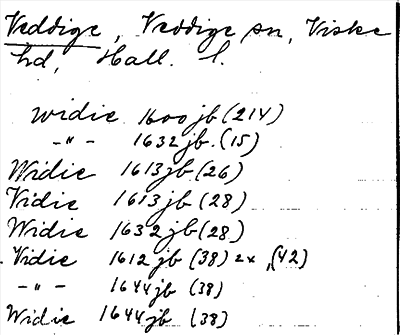 Veddige, Veddige sn, Viske
hd, Hall. l.
Widie 1600 jb (214)
-"- 1632 jb (15)
Widie 1613 jb (26)
Vidie 1613 jb (28)
Widie 1632 jb (28)
Vidie 1612 jb (38) 2x, (42)
-"- 1644 jb (38)
Widie 1644 jb (38)